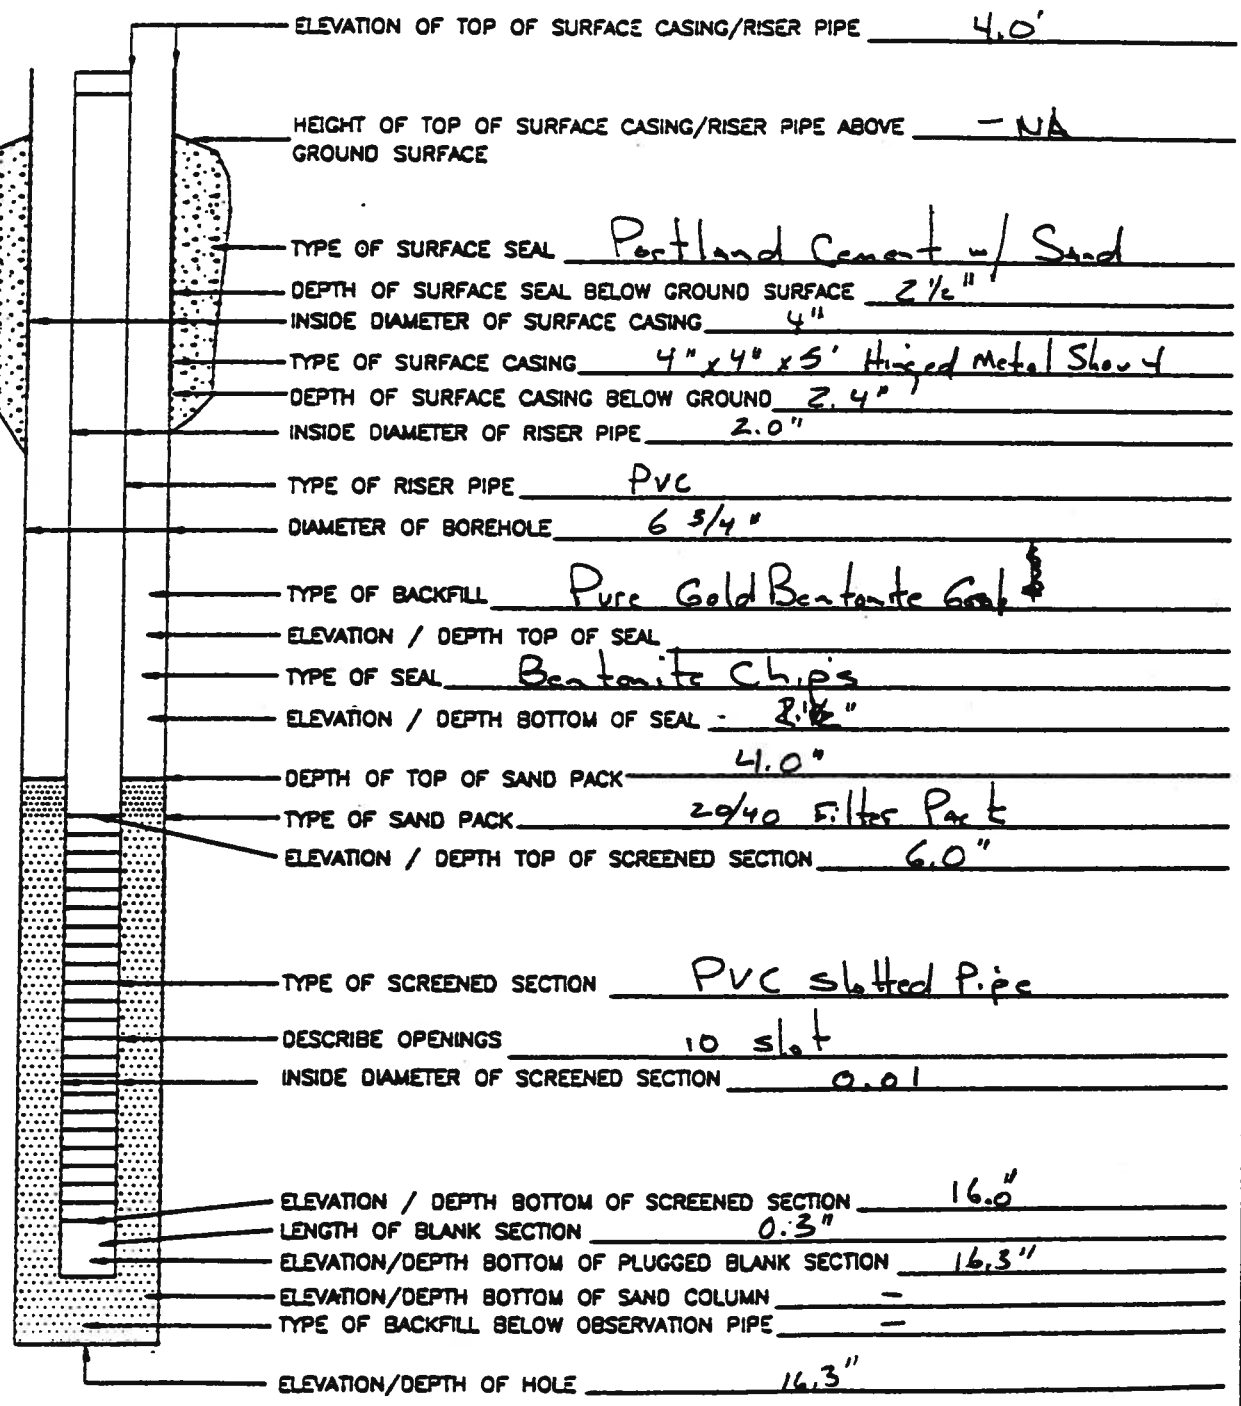 ELEVATION OF TOP OF SURFACE CASING/RISER PIPE 4.0'
HEIGHT OF TOP OF SURFACE CASING/RISER PIPE ABOVE - NA
GROUND SURFACE
TYPE OF SURFACE SEAL Portland Cement w/ Sand
DEPTH OF SURFACE SEAL BELOW GROUND SURFACE 2 1/2"
INSIDE DIAMETER OF SURFACE CASING 4"
TYPE OF SURFACE CASING 4" x 4" x 5' Hinged Metal
DEPTH OF SURFACE CASING BELOW GROUND 2.4"
INSIDE DIAMETER OF RISER PIPE 2.0"
TYPE OF RISER PIPE PVC
DIAMETER OF BOREHOLE 6 3/4"
TYPE OF BACKFILL Pure Gold Bentonite
ELEVATION / DEPTH TOP OF SEAL
TYPE OF SEAL Bentonite Chips
ELEVATION / DEPTH BOTTOM OF SEAL -
DEPTH OF TOP OF SAND PACK 4.0"
TYPE OF SAND PACK 20/40 Filter Pack
ELEVATION / DEPTH TOP OF SCREENED SECTION 6.0"
TYPE OF SCREENED SECTION PVC slotted Pipe
DESCRIBE OPENINGS 10 slot
INSIDE DIAMETER OF SCREENED SECTION 0.01
ELEVATION / DEPTH BOTTOM OF SCREENED SECTION 16.0"
LENGTH OF BLANK SECTION 0.3"
ELEVATION/DEPTH BOTTOM OF PLUGGED BLANK SECTION 16.3"
ELEVATION/DEPTH BOTTOM OF SAND COLUMN -
TYPE OF BACKFILL BELOW OBSERVATION PIPE -
ELEVATION/DEPTH OF HOLE 16.3"